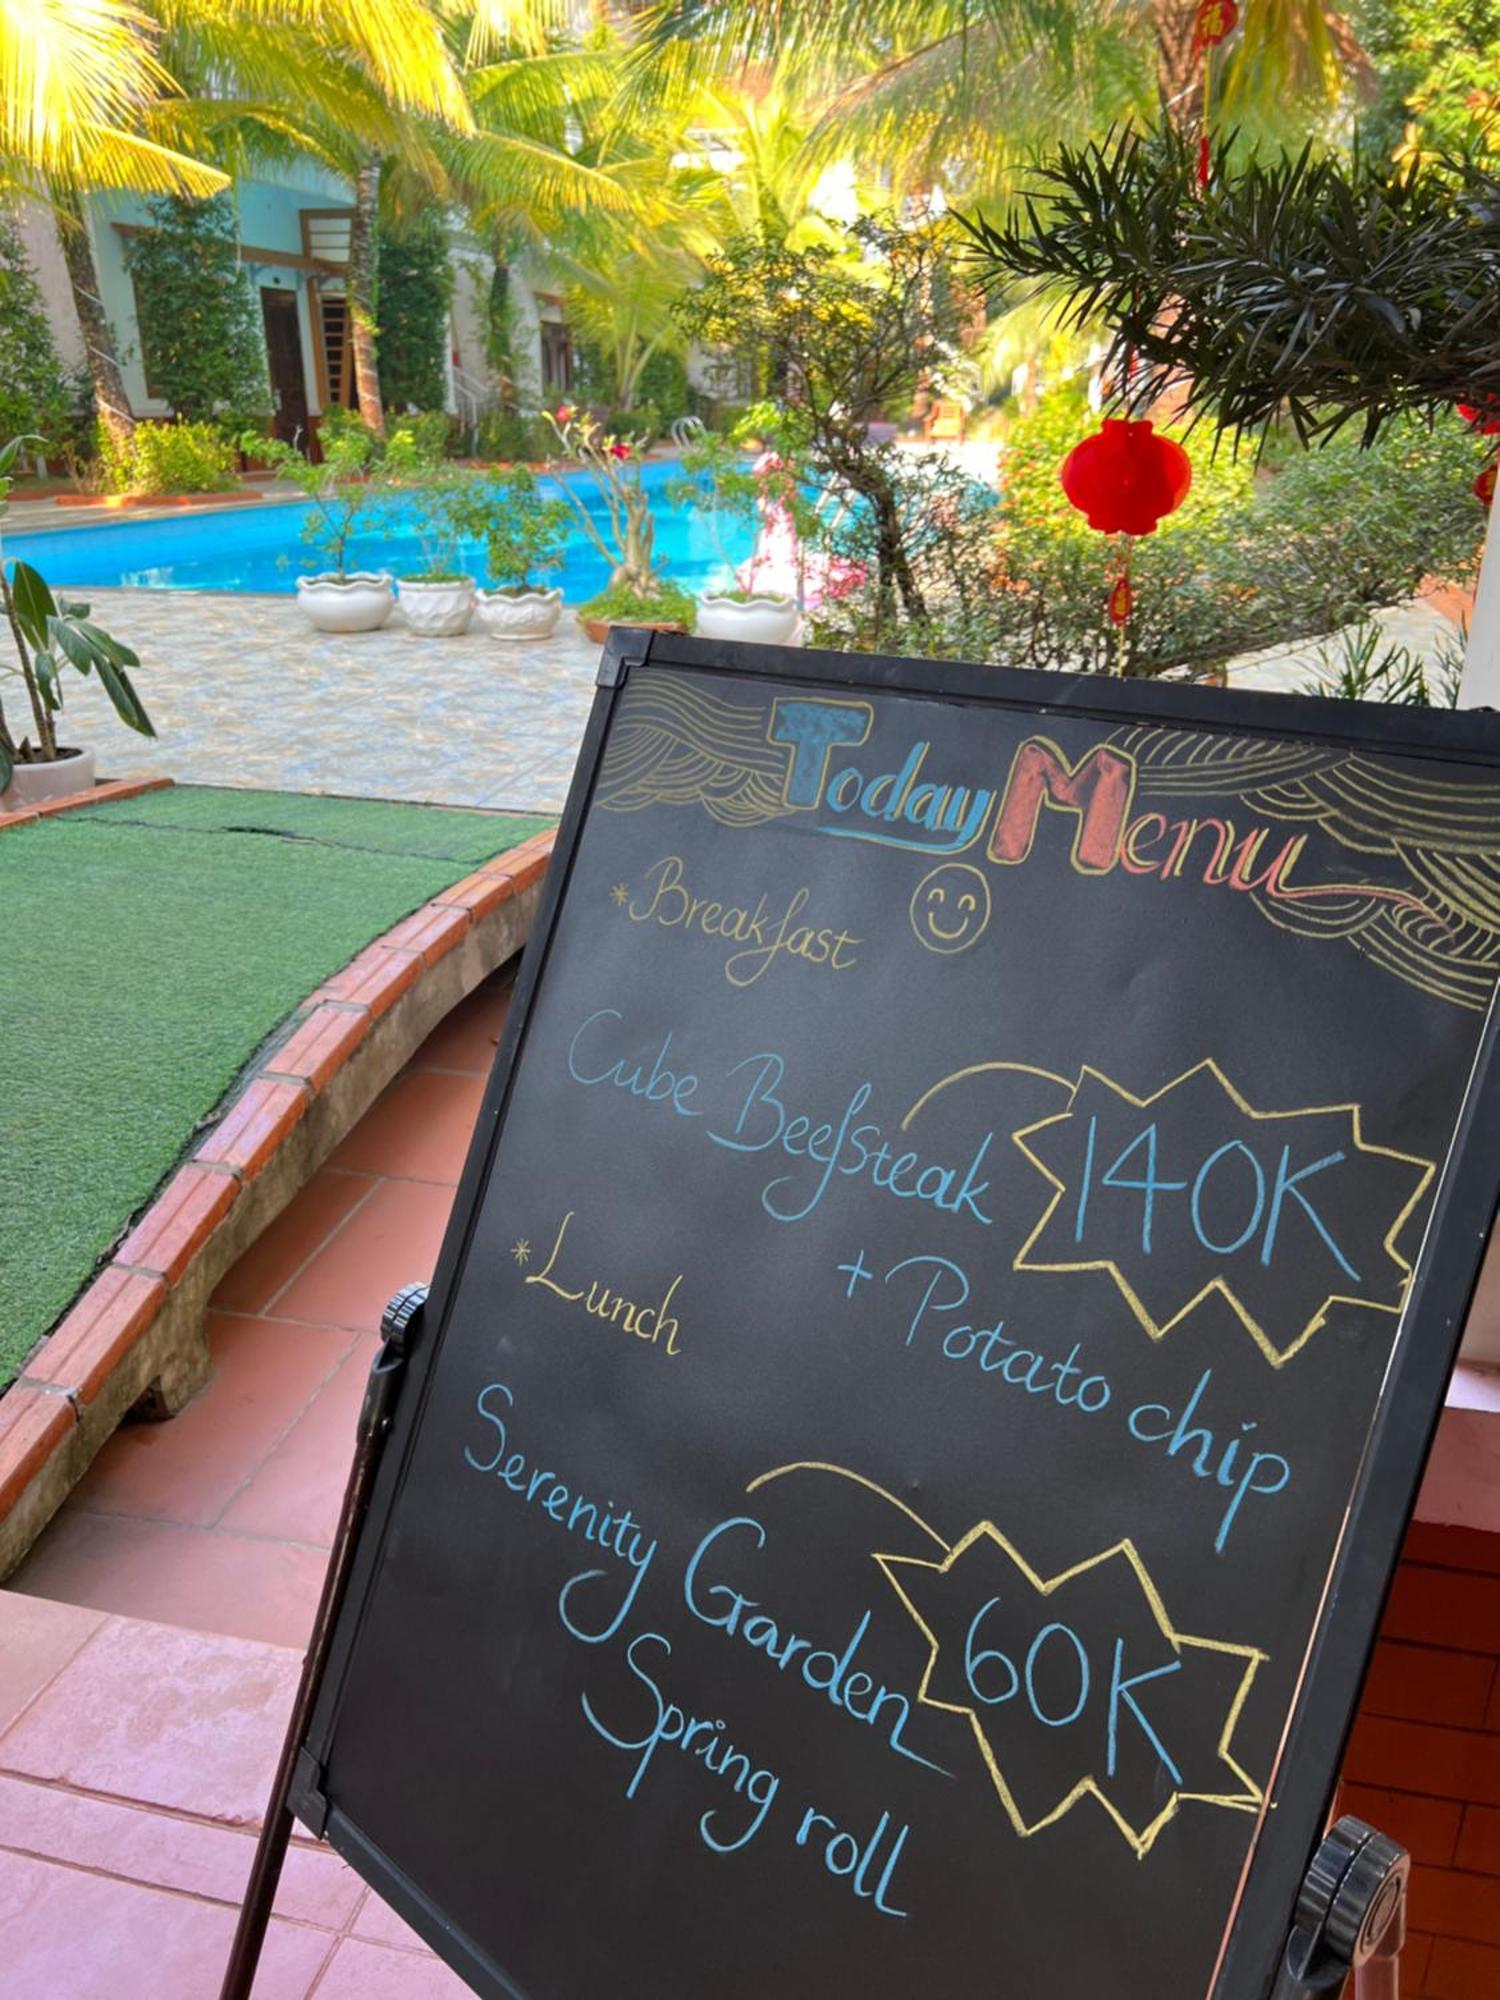 福
Today Menu
*Breakfast
Cube Beefsteak 140K
+ Potato chip
*Lunch
Serenity Garden 60K
Spring roll